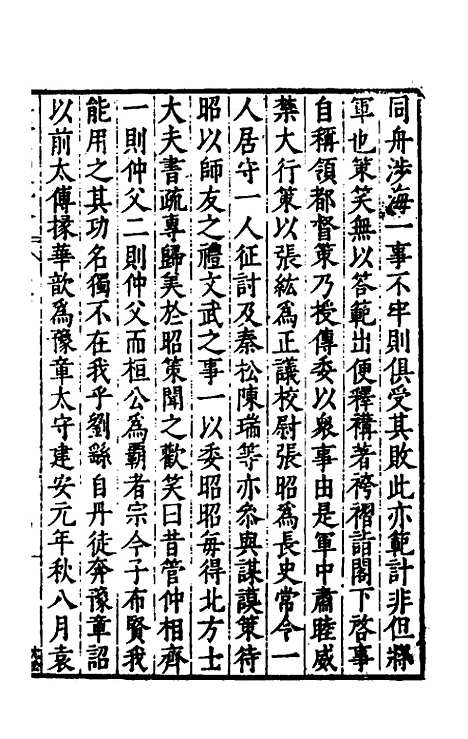 同舟涉海一事不牢則俱受其敗此亦範計非但將
軍也策笑無以答範出便釋褠著袴褶詣閤下啓事
自稱領都督策乃授傳委以衆事由是軍中肅睦威
禁大行策以張紘爲正議校尉張昭爲長史常令一
人居守一人征討及秦松陳瑞等亦參與謀謨策待
昭以師友之禮文武之事一以委昭昭每得北方士
大夫書疏專歸美於昭策聞之歡笑曰昔管仲相齊
一則仲父二則仲父而桓公爲霸者宗今子布賢我
能用之其功名獨不在我乎劉繇自丹徒奔豫章詔
以前太傅掾華歆爲豫章太守建安元年秋八月袁